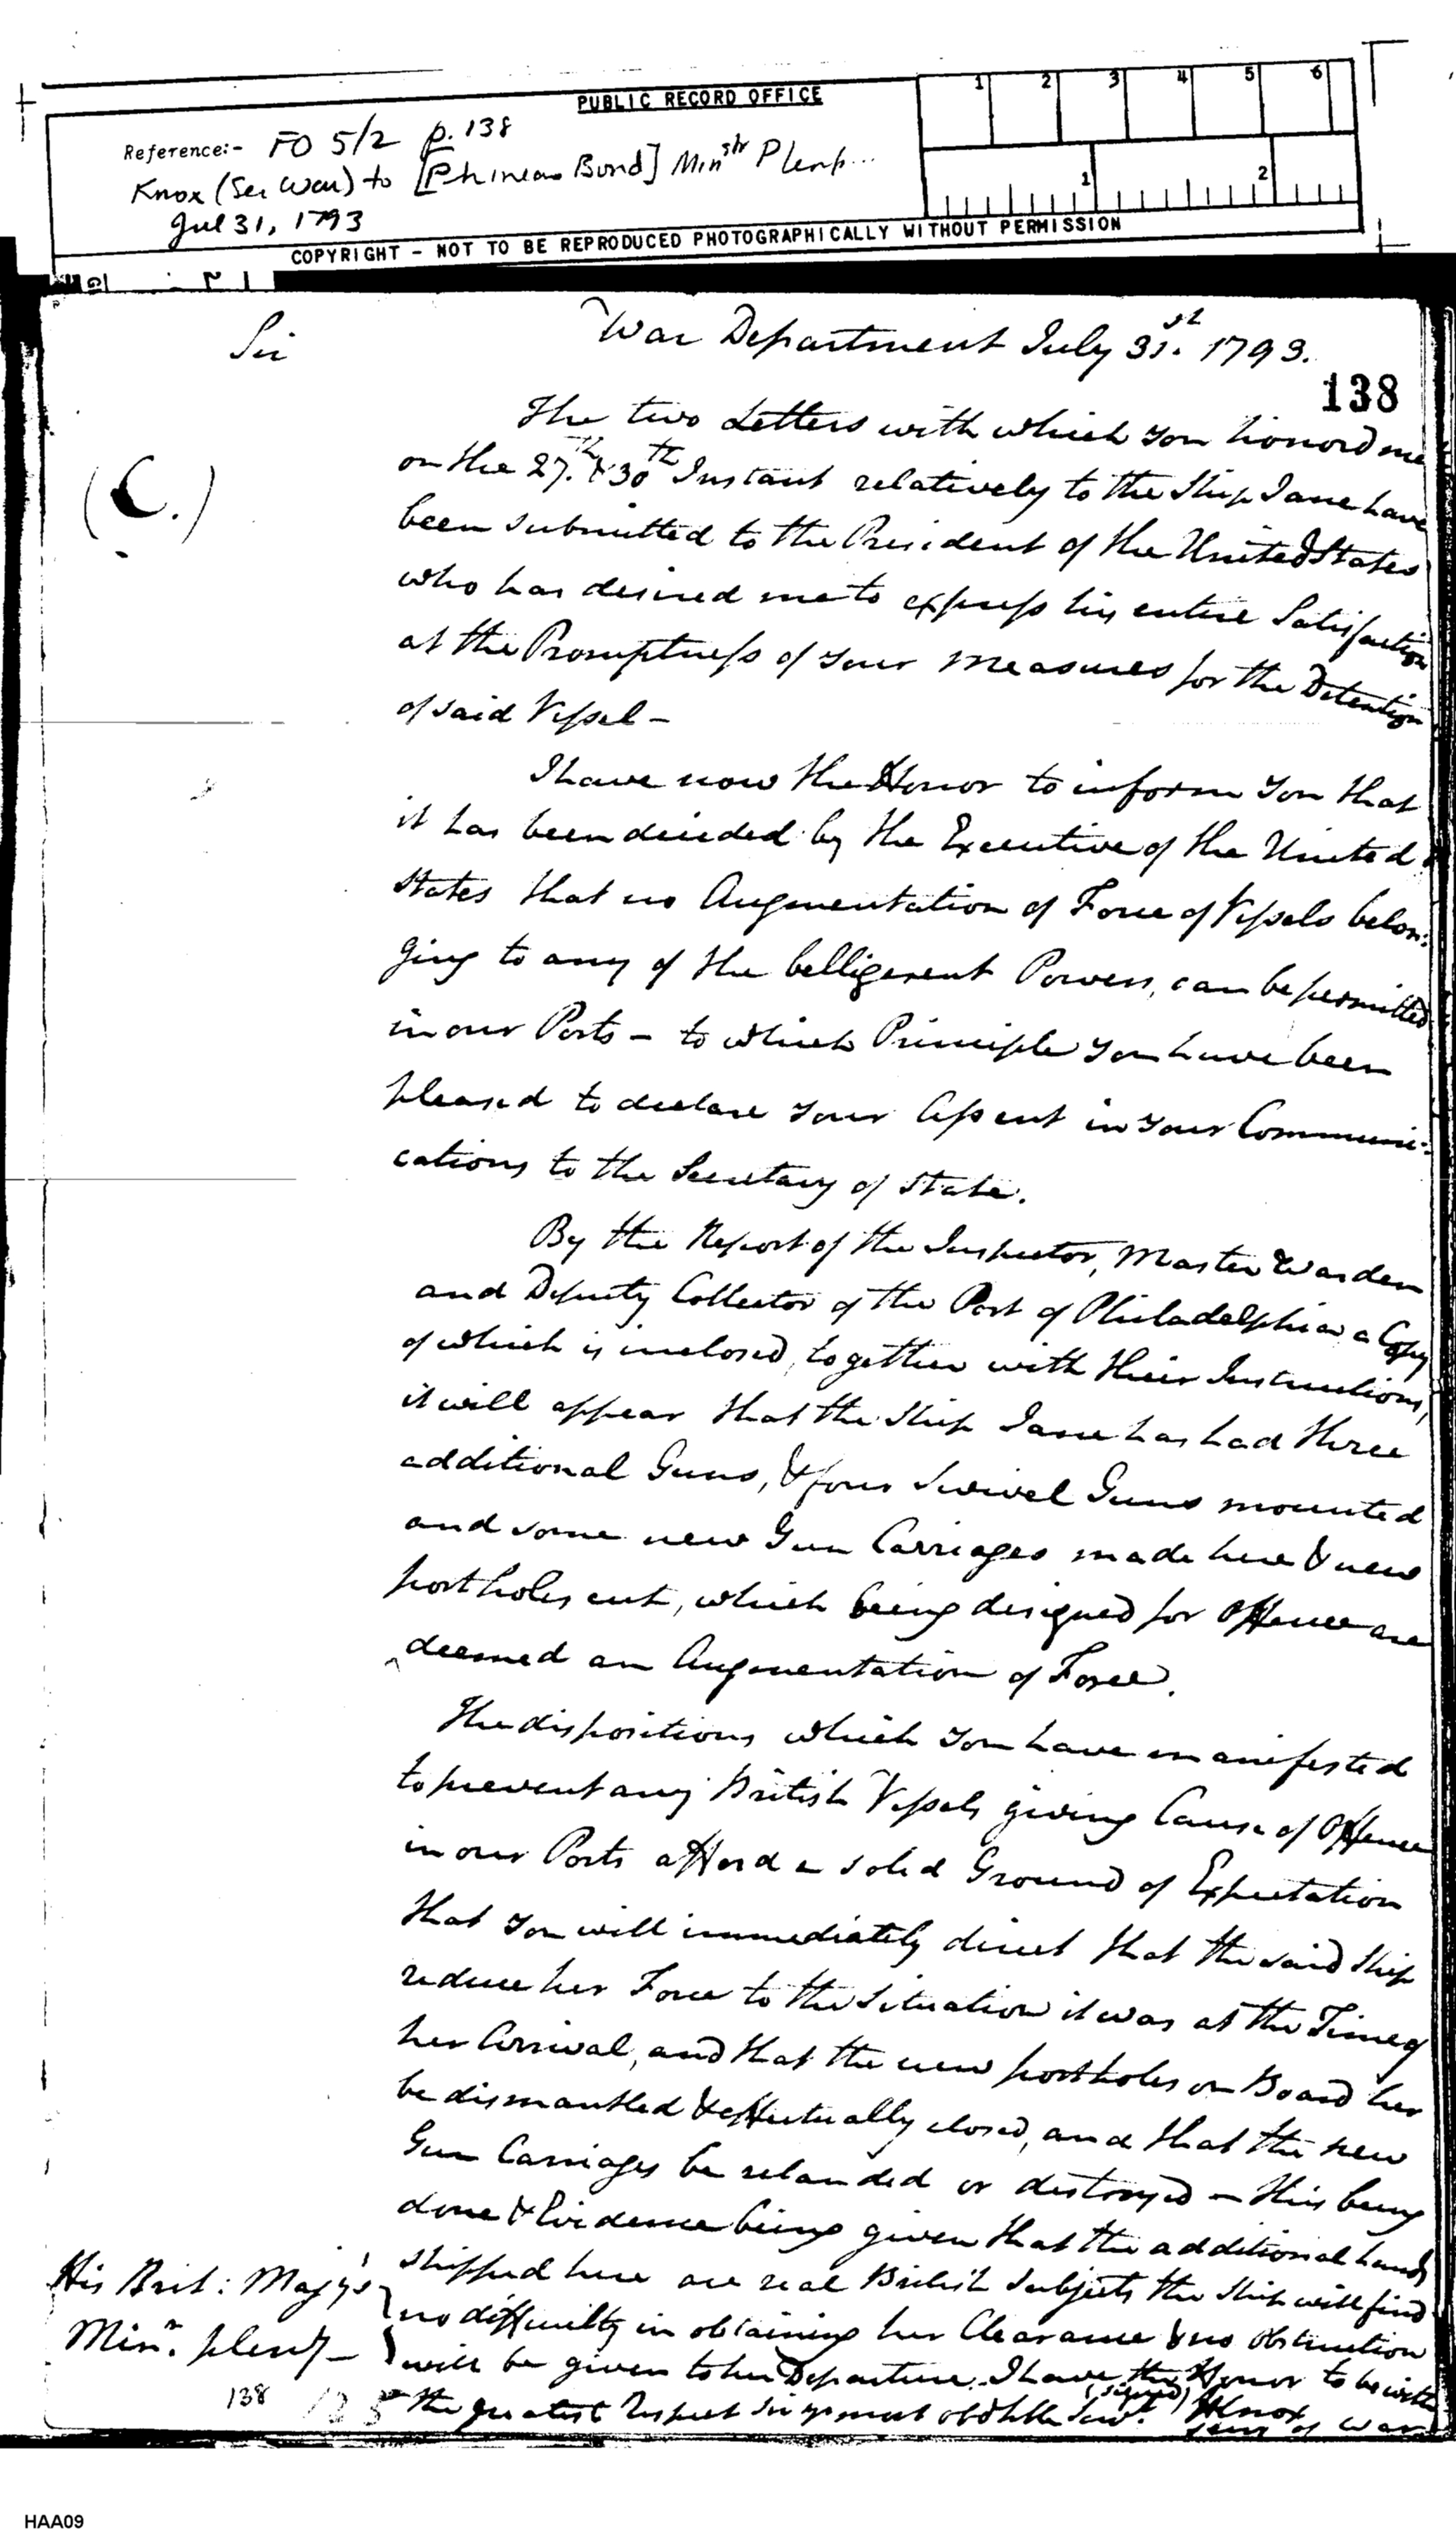 PUBLIC RECORD OFFICE
1 2 3 4 5 6
Reference:- FO 5/2 p. 138
Knox (Sec War) to [Phineas Bond] Minstr Plenp...
Jul 31, 1793
1 2
COPYRIGHT - NOT TO BE REPRODUCED PHOTOGRAPHICALLY WITHOUT PERMISSION
War Department July 31st. 1793.
Sir
138
The two Letters with which you honord me
(C.)
on the 27.th & 30th Instant relatively to the Ship Jane have
been submitted to the President of the United States
who has desired me to express his entire Satisfaction
at the Promptness of your Measures for the Detention
of said Vessel -
I have now the Honor to inform you that
it has been decided by the Executive of the United
States that no Augmentation of Force of Vessels belon:
ging to any of the belligerent Powers, can be permitted
in our Ports - to which Principle you have been
pleased to declare your Assent in your Communi:
cations to the Secretary of State.
By the Report of the Inspector, Master Warden
and Deputy Collector of the Port of Philadelphia a Copy
of which is inclosed, together with their Instructions,
it will appear that the Ship Jane has had three
additional Guns, & four Swivel Guns mounted
and some new Gun Carriages made here & new
portholes cut, which being designed for Offence are
deemed an Augmentation of Force.
The dispositions which you have manifested
to prevent any British Vessels giving Cause of Offence
in our Ports afford a solid Ground of Expectation
that you will immediately direct that the said Ship
reduce her Force to the Situation it was at the Time of
her Arrival, and that the new portholes on Board her
be dismantled & effectually closed, and that the new
Gun Carriages be relanded or destroyed - this being
done & Evidence being given that the additional hands
shipped here are real British Subjects the Ship will find
no difficulty in obtaining her Clearance & no obstruction
will be given to her Departure. I have the Honor to be with
the greatest Respect Sir yr most obdt hble Servt. (signed) HKnox
Secy of War
His Brit: Majy's
Minr. plenty -
138
HAA09